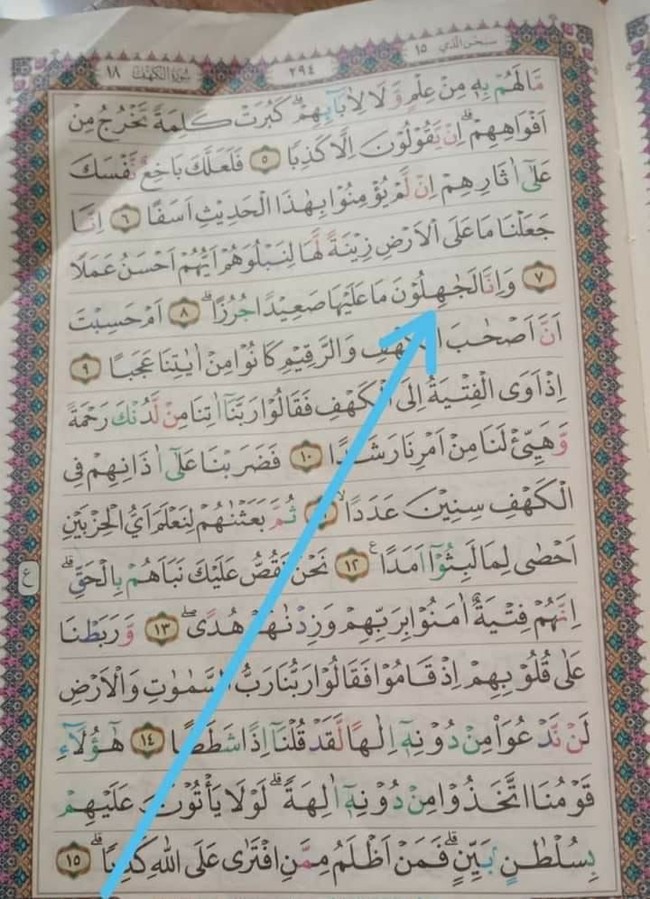 سبحن الذي ١٥
٢٩٤
سورة الكهف ١٨
مَّا لَهُمْ بِهٖ مِنْ عِلْمٍ وَّلَا لِاٰبَاۤىِٕهِمْۗ كَبُرَتْ كَلِمَةً تَخْرُجُ مِنْ
اَفْوَاهِهِمْۗ اِنْ يَّقُوْلُوْنَ اِلَّا كَذِبًا ٥ فَلَعَلَّكَ بَاخِعٌ نَّفْسَكَ
عَلٰٓى اٰثَارِهِمْ اِنْ لَّمْ يُؤْمِنُوْا بِهٰذَا الْحَدِيْثِ اَسَفًا ٦ اِنَّا
جَعَلْنَا مَا عَلَى الْاَرْضِ زِيْنَةً لَّهَا لِنَبْلُوَهُمْ اَيُّهُمْ اَحْسَنُ عَمَلًا
٧ وَاِنَّا لَجٰهِلُوْنَ مَا عَلَيْهَا صَعِيْدًا جُرُزًاۗ ٨ اَمْ حَسِبْتَ
اَنَّ اَصْحٰبَ الْكَهْفِ وَالرَّقِيْمِ كَانُوْا مِنْ اٰيٰتِنَا عَجَبًا ٩
اِذْ اَوَى الْفِتْيَةُ اِلَى الْكَهْفِ فَقَالُوْا رَبَّنَآ اٰتِنَا مِنْ لَّدُنْكَ رَحْمَةً
وَّهَيِّئْ لَنَا مِنْ اَمْرِنَا رَشَدًا ١٠ فَضَرَبْنَا عَلٰٓى اٰذَانِهِمْ فِى
الْكَهْفِ سِنِيْنَ عَدَدًاۙ ثُمَّ بَعَثْنٰهُمْ لِنَعْلَمَ اَيُّ الْحِزْبَيْنِ
اَحْصٰى لِمَا لَبِثُوْٓا اَمَدًا ࣖ ١٢ نَحْنُ نَقُصُّ عَلَيْكَ نَبَاَهُمْ بِالْحَقِّۗ
ع
اِنَّهُمْ فِتْيَةٌ اٰمَنُوْا بِرَبِّهِمْ وَزِدْنٰهُمْ هُدًىۖ ١٣ وَّرَبَطْنَا
عَلٰى قُلُوْبِهِمْ اِذْ قَامُوْا فَقَالُوْا رَبُّنَا رَبُّ السَّمٰوٰتِ وَالْاَرْضِ
لَنْ نَّدْعُوَا۟ مِنْ دُوْنِهٖٓ اِلٰهًا لَّقَدْ قُلْنَآ اِذًا شَطَطًا ١٤ هٰٓؤُلَاۤءِ
قَوْمُنَا اتَّخَذُوْا مِنْ دُوْنِهٖٓ اٰلِهَةًۗ لَوْلَا يَأْتُوْنَ عَلَيْهِمْ
بِسُلْطٰنٍۢ بَيِّنٍۗ فَمَنْ اَظْلَمُ مِمَّنِ افْتَرٰى عَلَى اللّٰهِ كَذِبًاۗ ١٥